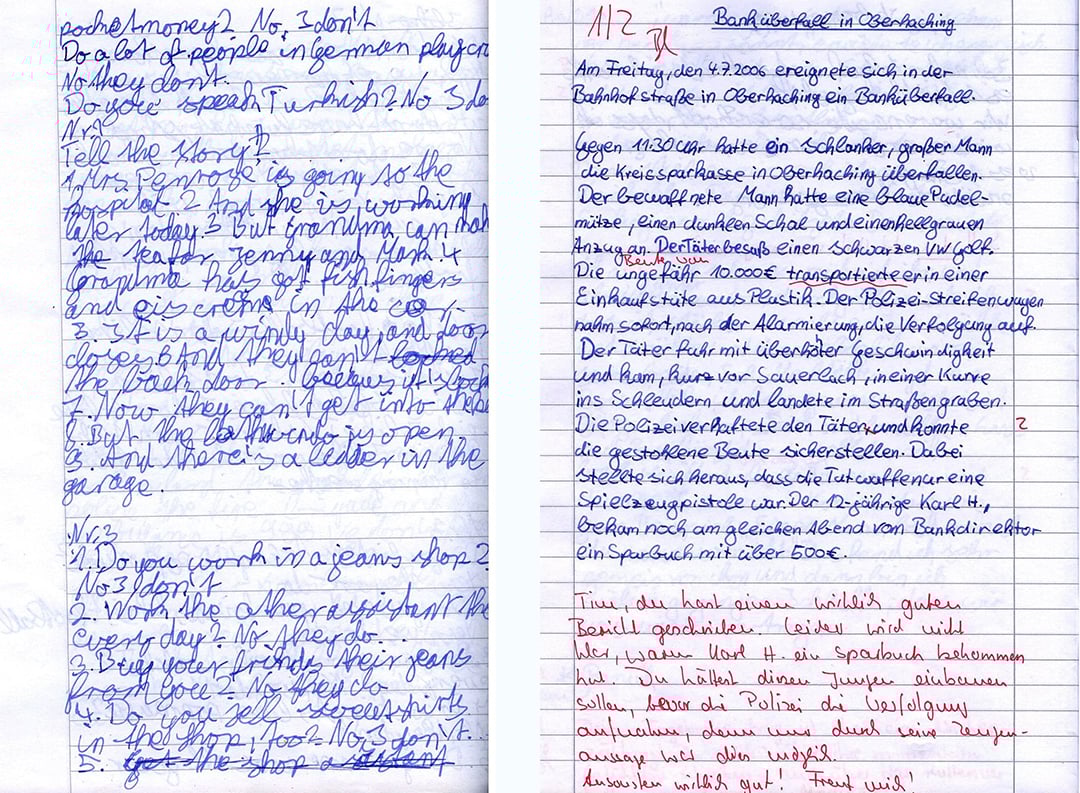 pocket money? No, I don't
Do a lot of people in German play cri
No they don't.
Do you speak Turkish? No I do
Nr.2
Tell the story!
1. Mrs Penrose is going to the
hospital 2 And she is working
later today. 3 But grandma can mak
the tea for Jenny and Mark 4
Grandma has got fish fingers
and eiscreme in the
5. It is a windy day, and door
closes. 6 And they can't
the back door. it is lock
7. Now they can't get into the
8. But the is open
9. And there is a ledder in the
garage.
Nr.3
1. Do you work in a jeans shop?
No I don't
2. Work the other assistant the
every day? No they do...
3. Buy your friends their jeans
from you? No they do
4. Do you sell sweatshirts
in the shop, too? No, I don't...
5. get the shop a
1/2
Banküberfall in Oberhaching
Am Freitag, den 4.7.2006 ereignete sich in der
Bahnhofstraße in Oberhaching ein Banküberfall.
Gegen 11:30 Uhr hatte ein schlanker, großer Mann
die Kreissparkasse in Oberhaching überfallen.
Der bewaffnete Mann hatte eine blaue Pudel-
mütze, einen dunklen Schal und einen hellgrauen
Anzug an. Der Täter besaß einen schwarzen VW Golf.
Beute von
Die ungefähr 10.000€ transportierte er in einer
Einkaufstüte aus Plastik. Der Polizei-Streifenwagen
nahm sofort, nach der Alarmierung, die Verfolgung auf.
Der Täter fuhr mit überhöter Geschwindigkeit
und kam, kurz vor Sauerlach, in einer Kurve
ins Schleudern und landete im Straßengraben.
Die Polizei verhaftete den Täter und konnte
die gestohlene Beute sicherstellen. Dabei
stellte sich heraus, dass die Tatwaffe nur eine
Spielzeugpistole war. Der 12-jährige Karl H.,
bekam noch am gleichen Abend vom Bankdirektor
ein Sparbuch mit über 500€.
Tim, du hast einen wirklich guten
Bericht geschrieben. Leider wird nicht
klar, warum Karl H. ein Sparbuch bekommen
hat. Du hättest diesen Jungen einbauen
sollen, bevor die Polizei die Verfolgung
aufnahm, denn nur durch seine Zeugen-
aussage war dies möglich.
Ansonsten wirklich gut! Freut mich!